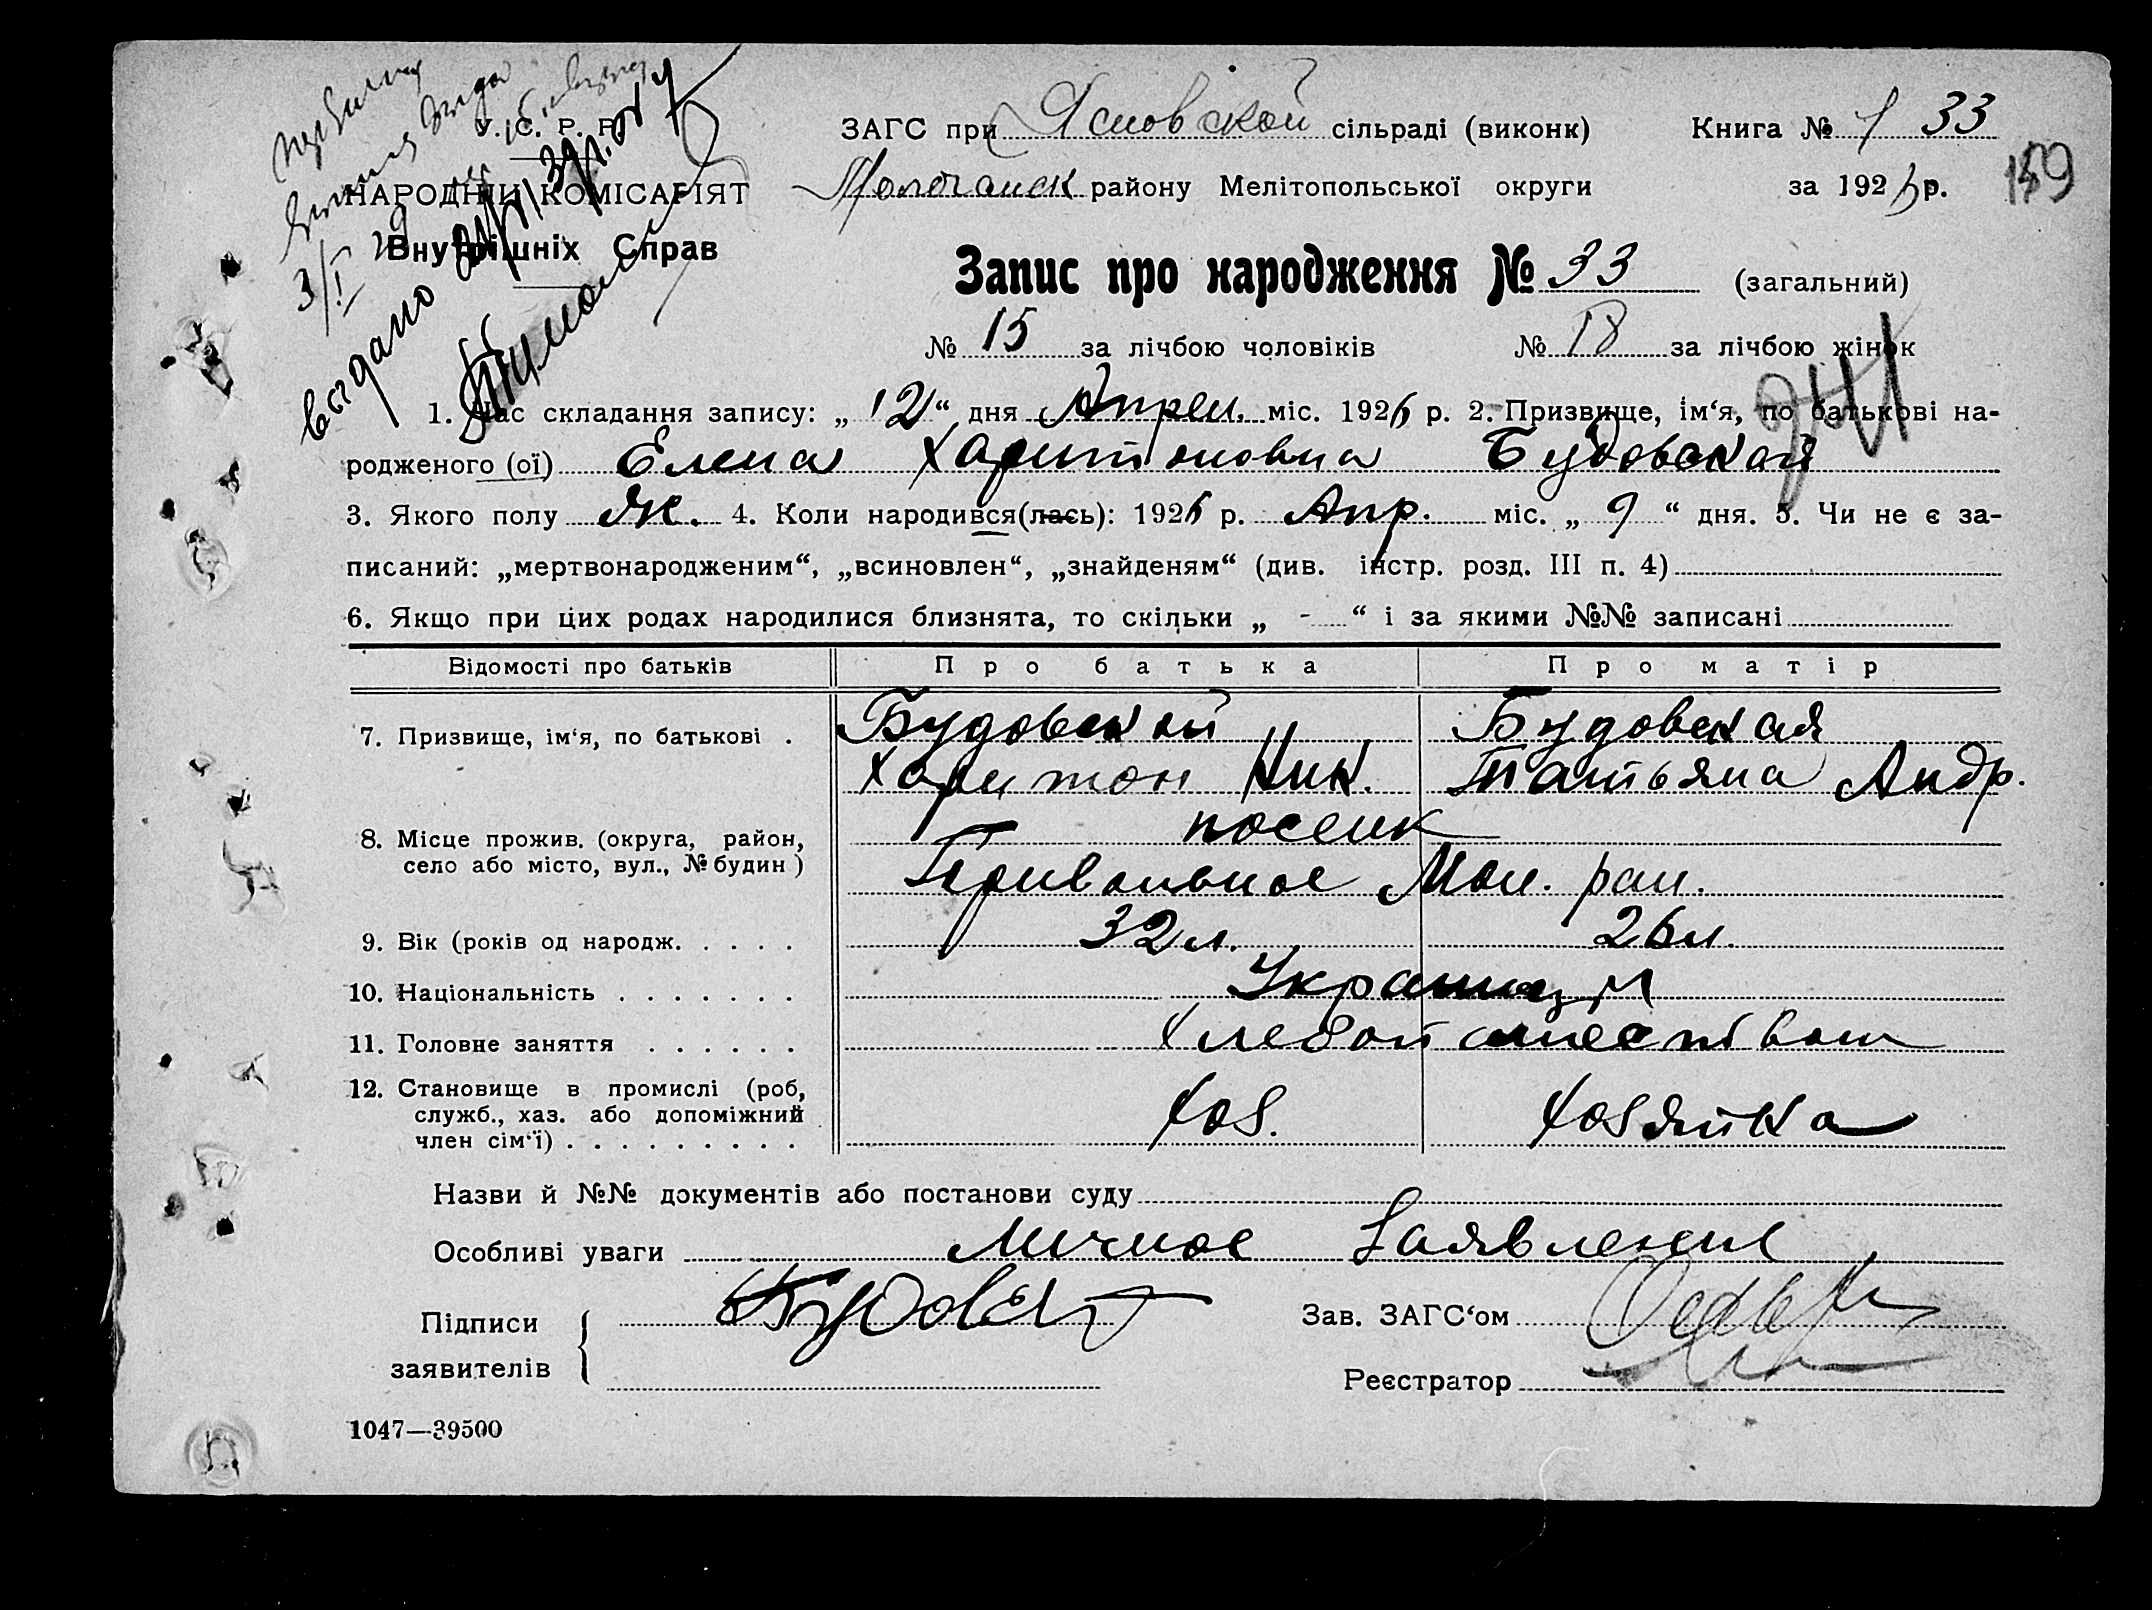 У. С. Р. Р.
НАРОДНИЙ КОМІСАРІЯТ
Внутрішніх Справ
3/I 29
выдано
ЗАГС при Ясновской сільраді (виконк) Книга № 1 33
Молочанск району Мелітопольської округи за 1926 р. 159
Запис про народження № 33 (загальний)
№ 15 за лічбою чоловіків № 18 за лічбою жінок
1. Час складання запису: „ 12 “ дня Апрел. міс. 1926 р. 2. Призвище, ім‘я, по батькові на-
родженого (ої) Елена Харитоновна Будовская
3. Якого полу Ж. 4. Коли народився(лась): 1926 р. Апр. міс. „ 9 “ дня. 5. Чи не є за-
писаний: „мертвонародженим“, „всиновлен“, „знайденям“ (див. інстр. розд. III п. 4)
6. Якщо при цих родах народилися близнята, то скільки „ - “ і за якими №№ записані
Відомості про батьків Про батька Про матір
7. Призвище, ім‘я, по батькові . Будовский Будовская
Харитон Ник. Татьяна Андр.
8. Місце прожив. (округа, район, село або місто, вул., № будин) поселк
Привольное Мол. рай.
9. Вік (років од народж. . . . . 32 л. 26 л.
10. Національність . . . . . . . Украинцы
11. Головне заняття . . . . . . Хлебопашеством
12. Становище в промислі (роб, служб., хаз. або допоміжний член сім‘ї) . . . . . . . . . Хоз. Хозяйка
Назви й №№ документів або постанови суду
Особливі уваги Личное Заявление
Підписи заявителів Будовск
Зав. ЗАГС‘ом
Реєстратор
1047—39500